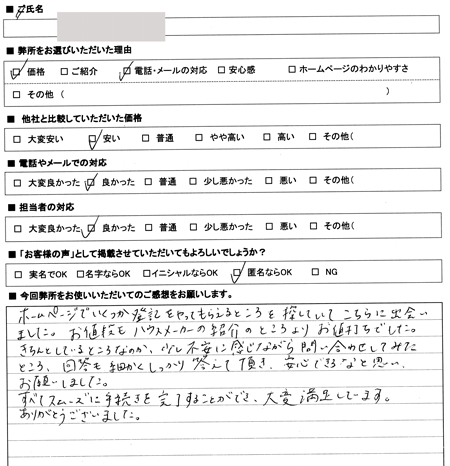 ■ ご氏名
■ 弊所をお選びいただいた理由
☑ 価格 □ ご紹介 ☑ 電話・メールの対応 □ 安心感 □ ホームページのわかりやすさ
□ その他（ ）
■ 他社と比較していただいた価格
□ 大変安い ☑ 安い □ 普通 □ やや高い □ 高い □ その他（
■ 電話やメールでの対応
□ 大変良かった ☑ 良かった □ 普通 □ 少し悪かった □ 悪い □ その他（
■ 担当者の対応
□ 大変良かった ☑ 良かった □ 普通 □ 少し悪かった □ 悪い □ その他（
■ 「お客様の声」として掲載させていただいてもよろしいでしょうか？
□ 実名でOK □ 名字ならOK □ イニシャルならOK ☑ 匿名ならOK □ NG
■ 今回弊所をお使いいただいてのご感想をお願いします。
ホームページでいくつか登記をやってもらえるところを探していてこちらに出会い
ました。お値段もハウスメーカーの紹介のところよりお値打ちでした。
きちんとしているところなのか、少し不安に感じながら問い合わせしてみた
ところ、回答も細かくしっかり答えて頂き、安心できるなと思い、
お願いしました。
すべてスムーズに手続きを完了することができ、大変満足しています。
ありがとうございました。